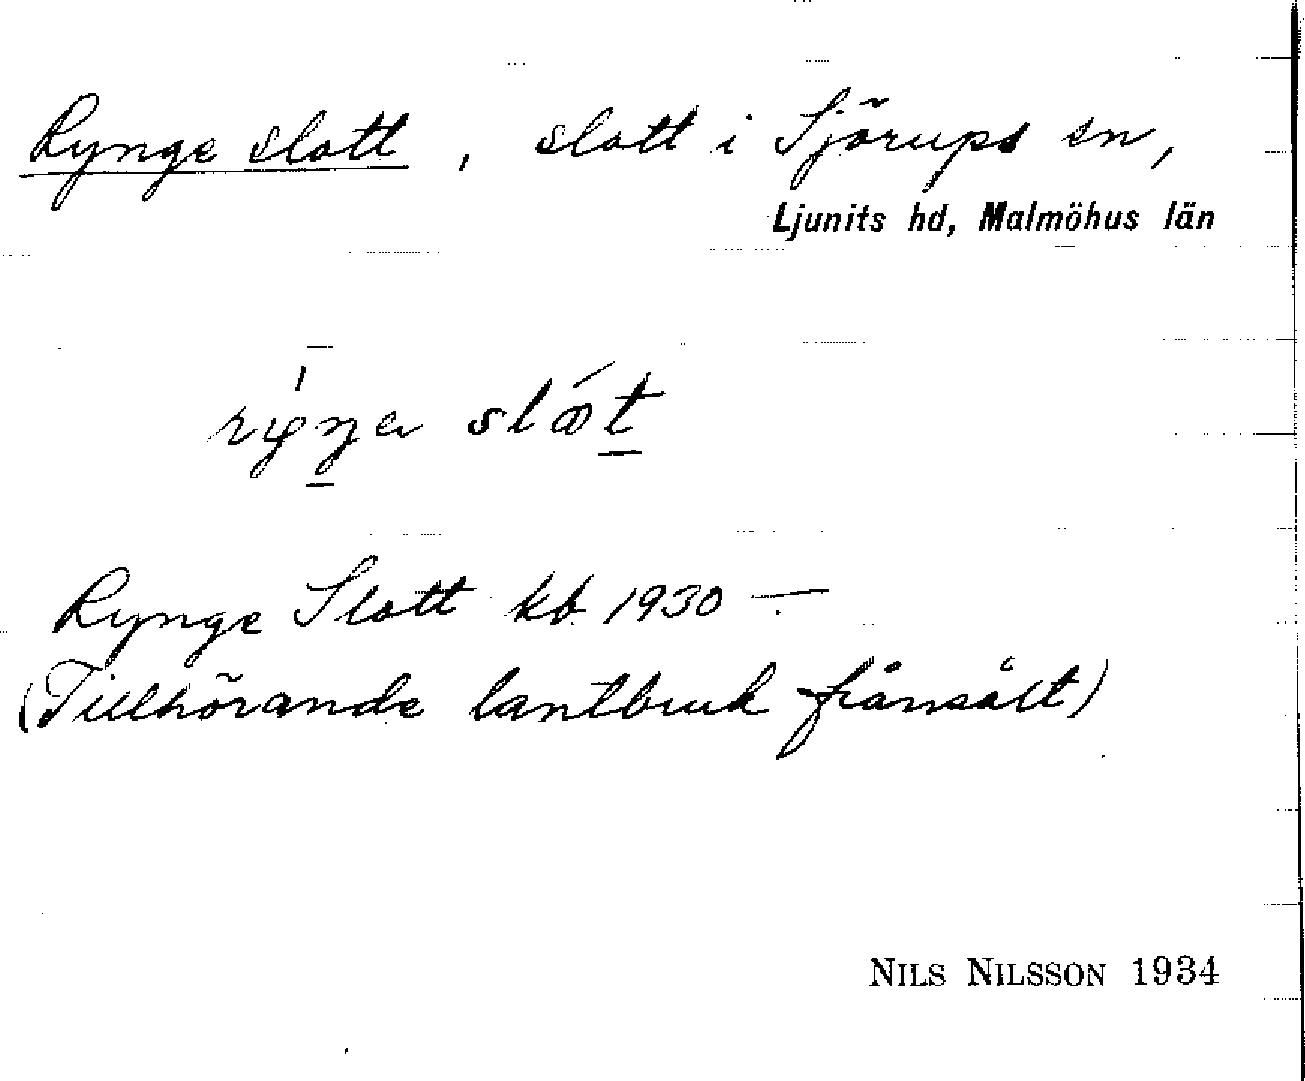 Rynge slott, slott i Sjörups sn,
Ljunits hd, Malmöhus län
slǽt
Rynge Slott kb. 1930 —.
(Tillhörande lantbruk frånsålt)
NILS NILSSON 1934